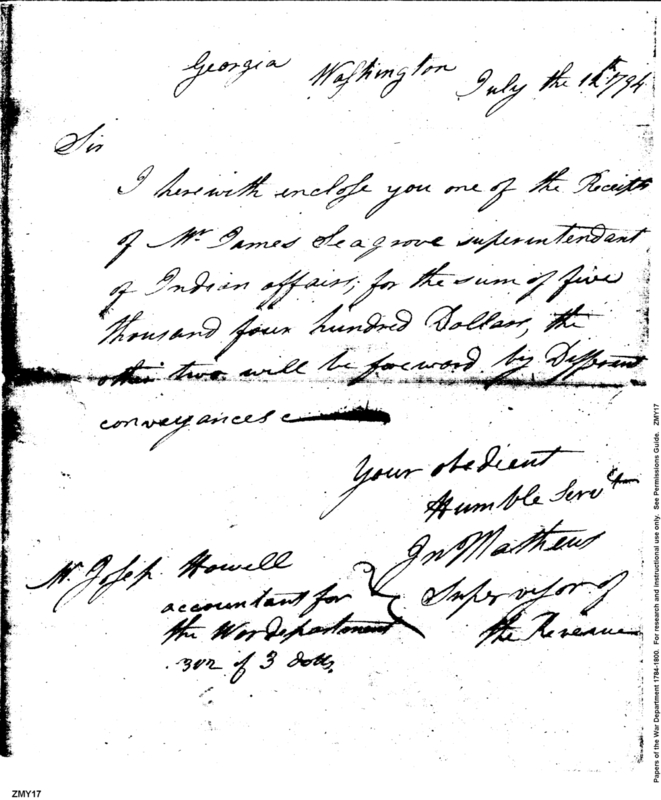 Georgia Washington July the 12th 1794
Sir
I herewith enclose you one of the Receipts
of Mr James Seagrove superintendant
of Indian affairs, for the sum of five
thousand four hundred Dollars, the
other two will be foreword by Different
conveyances
Your obedient
Humble Servt
Jn Mathews
Supervisor of
the Revenue
Mr. Joseph Howell
accountant for
the War department
of 3 dolls,
Papers of the War Department 1784-1800. For research and instructional use only. See Permissions Guide. ZMY17
ZMY17